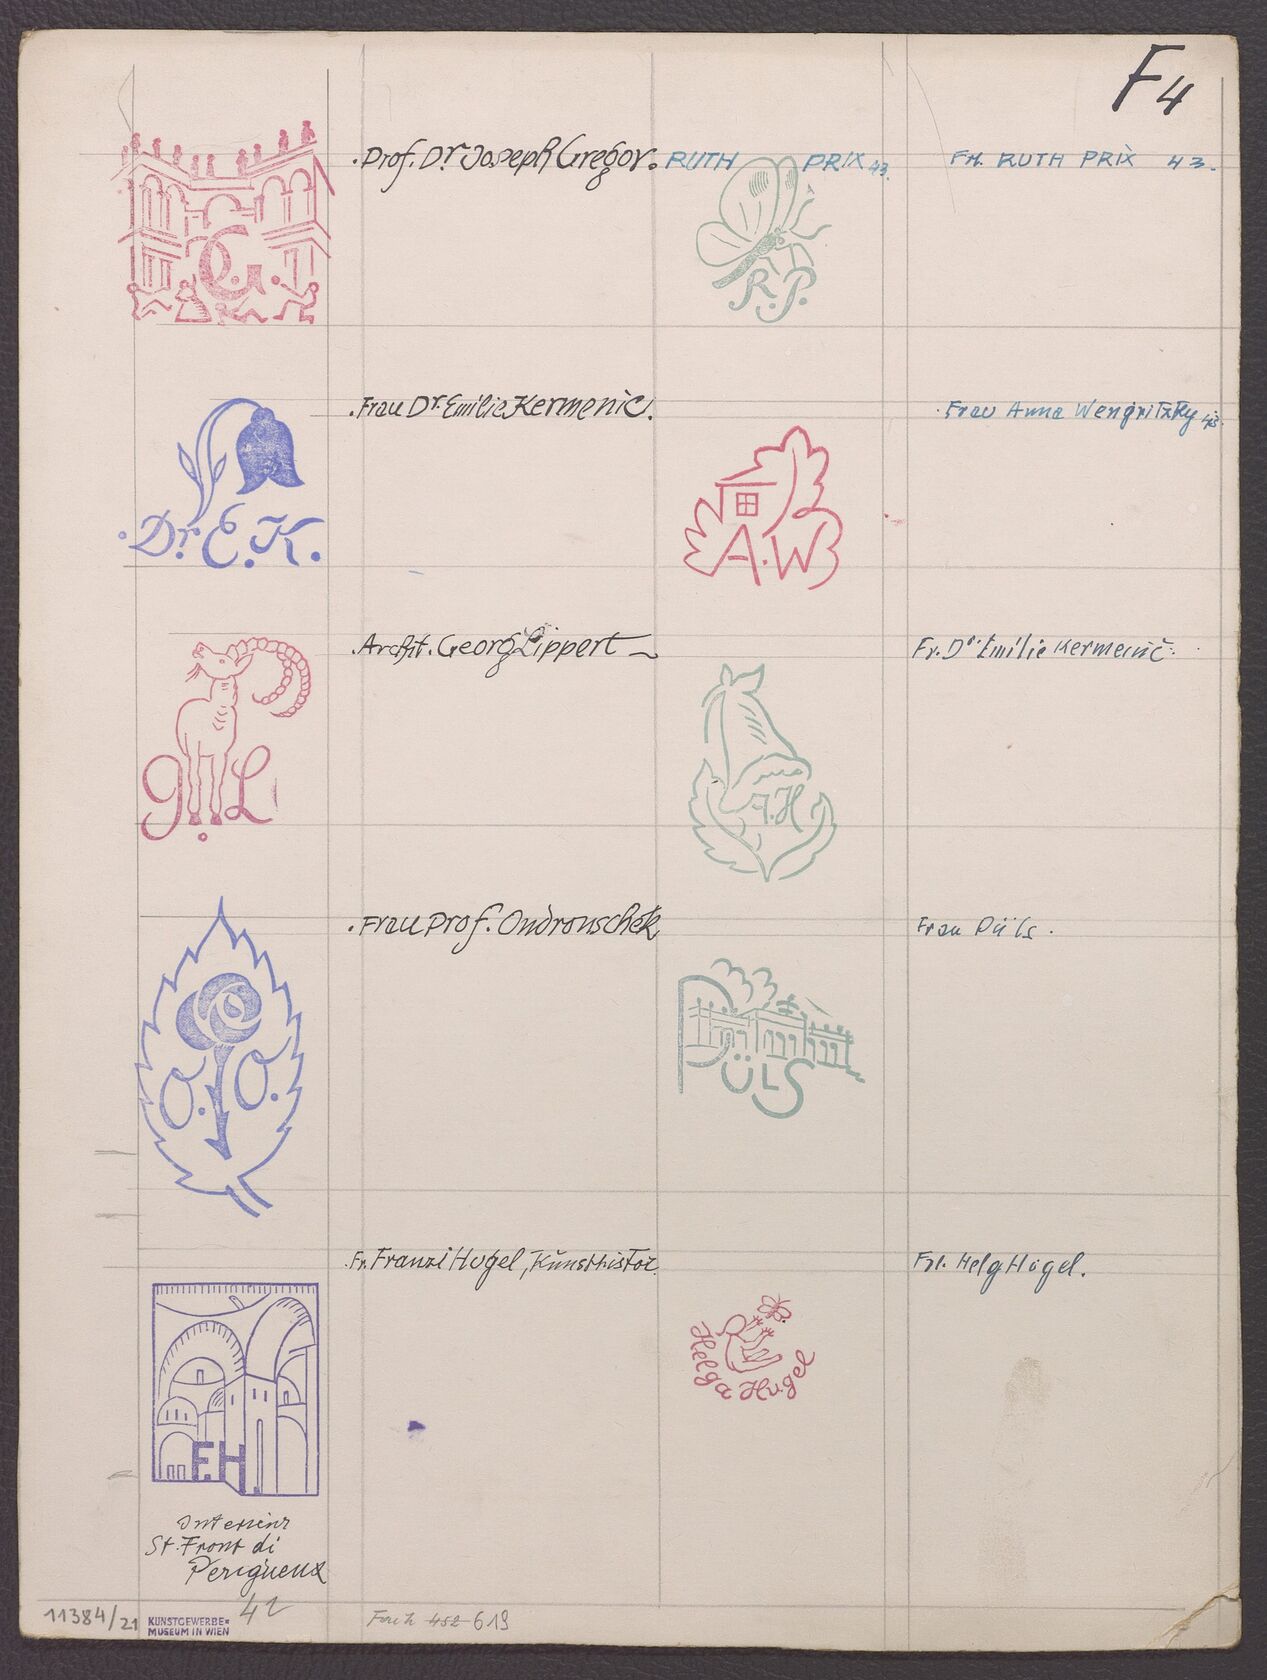 F4
G.
. Prof. Dr. Joseph Gregor.
RUTH PRIX 43.
R.P.
FR. RUTH PRIX 43.
. Dr. E. K.
. Frau Dr. Emilie Kermenic.
A.W
. Frau Anna Wengritzky 43.
G.L
. Archit. Georg Lippert
J.H
Fr. Dr Emilie Kermenič.
O. O.
. Frau Prof. Ondrouschek
PÜLS
Frau Püls.
F.H.
Fr. Franzi Hugel, Kunsthistor.
Helga Hugel
Frl. Helg Hügel.
Interieur
St. Front di
Perigueux
42
11384/21
KUNSTGEWERBE=
MUSEUM IN WIEN
452 619